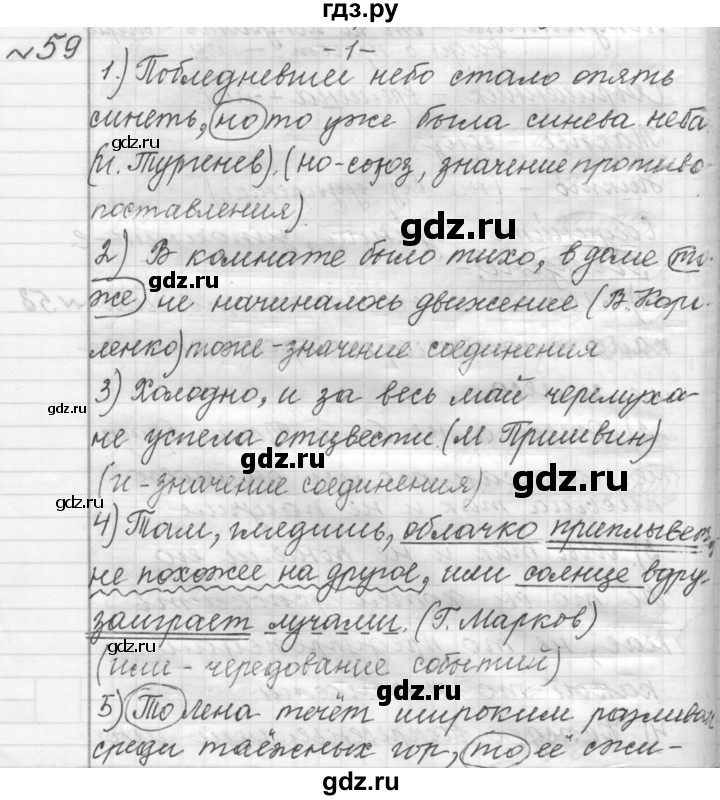 гдз.ру
№59 -1-
1.) Побледневшее небо стало опять
gdz.ru
синеть, но то уже была синева неба
gdz.ru
(И. Тургенев). (но-союз, значение противо
поставления).
gdz.ru
2) В комнате было тихо, в доме то
gdz.ru
же не начиналось движение (В. Коро
ленко) тоже-значение соединения
3) Холодно, и за весь май черемуха
gdz.ru
не успела отцвести (М. Пришвин)
gdz.ru
(и-значение соединения)
gdz.ru
gdz.ru
4) Там, глядишь, облачко приплывет,
не похожее на другое, или солнце вдру
заиграет лучами. (Г. Марков)
gdz.ru
(или-чередование событий)
gdz.ru
5) То Лена течёт широким разливом
среди таёжных гор, то её сжи-
gdz.ru
gdz.ru